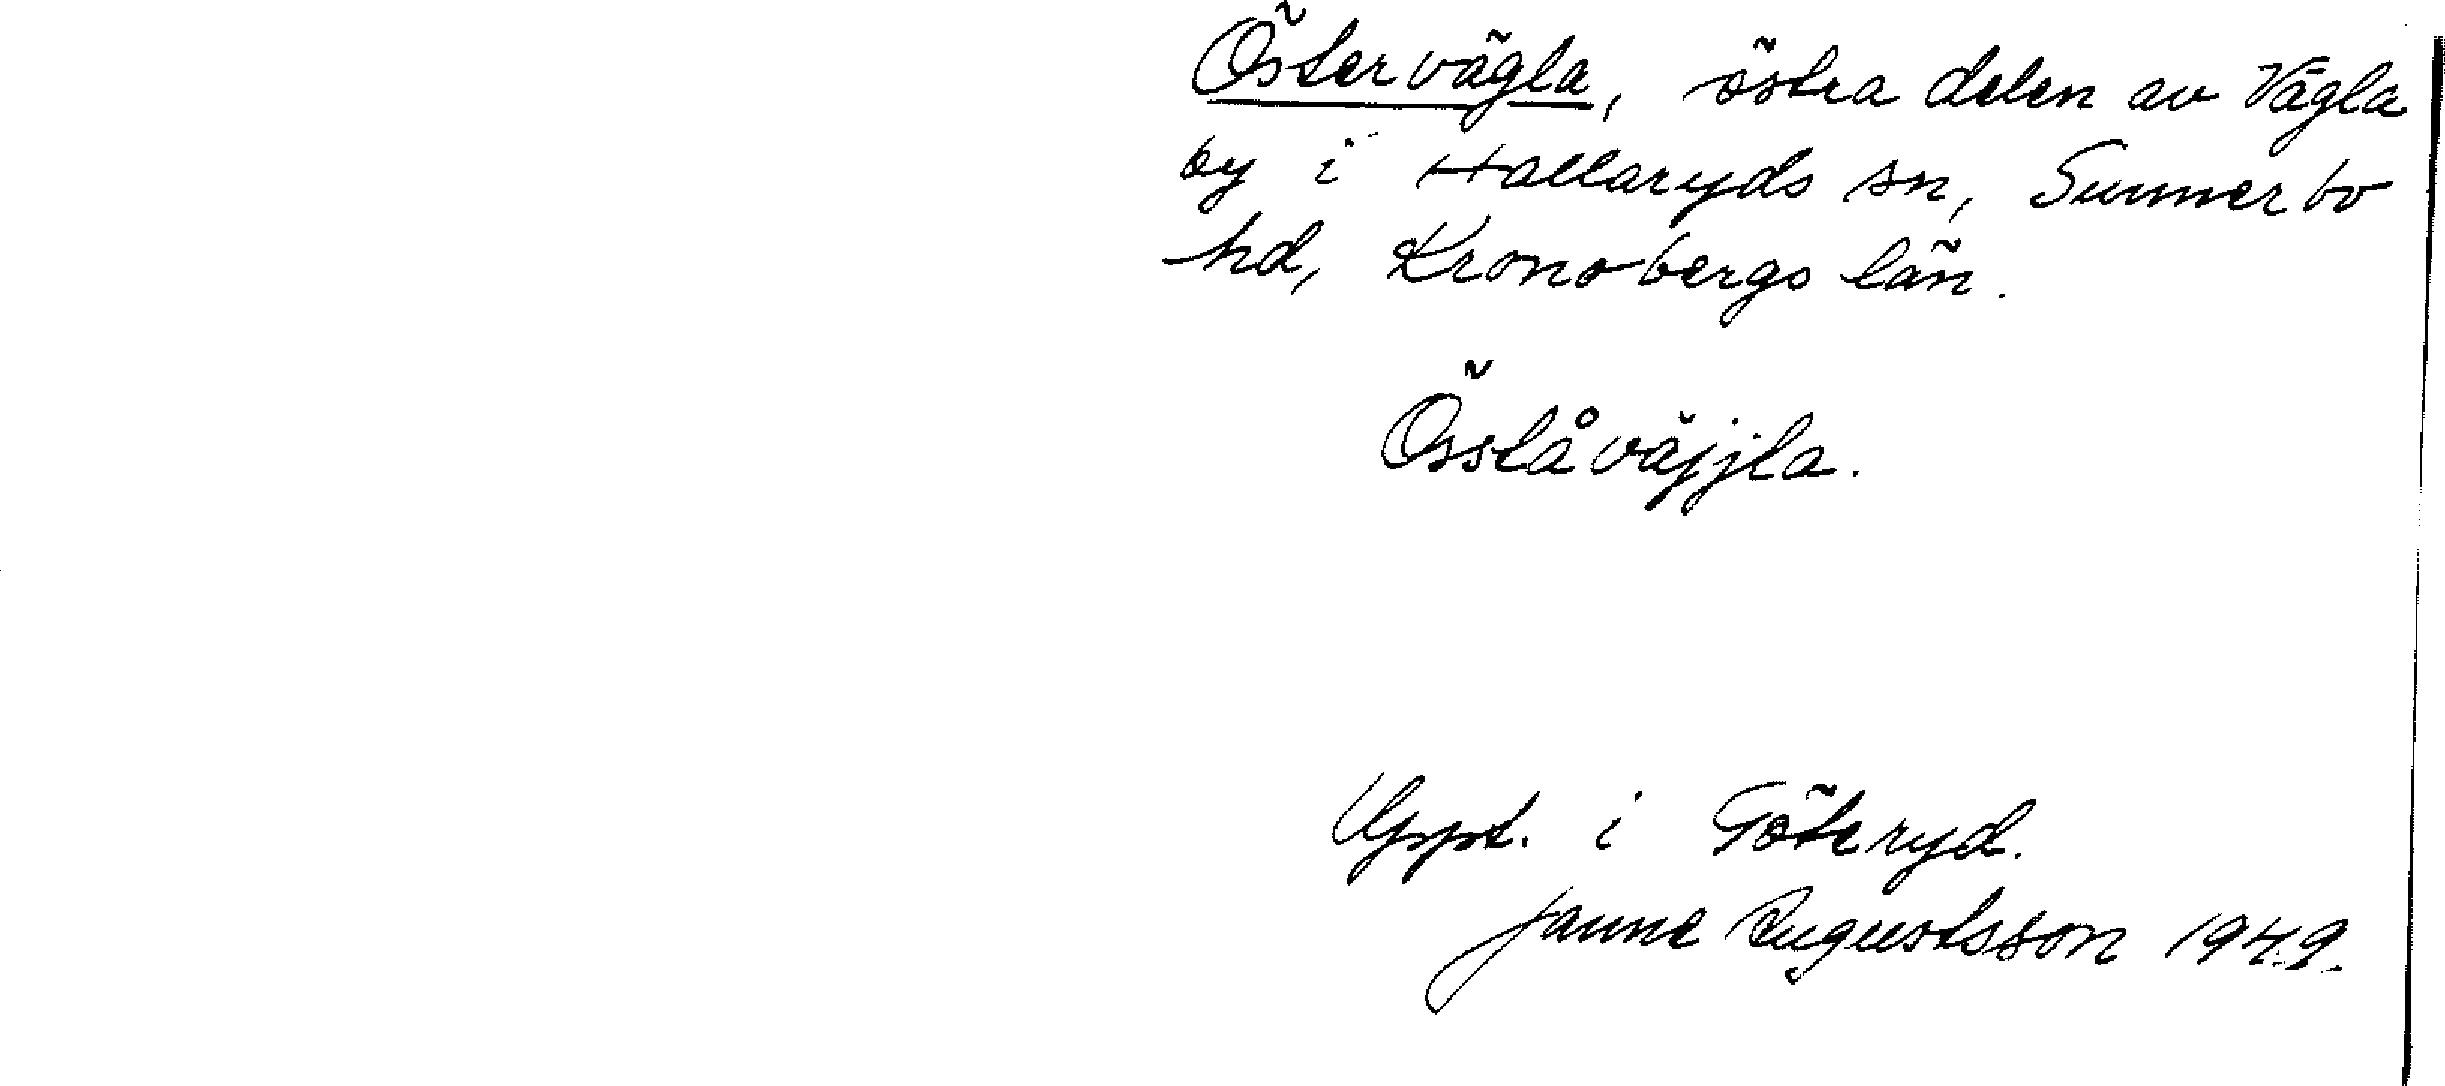 Östervägla, östra delen av Vägla
by i Hallaryds sn, Sunnerbo
hd, Kronobergs län.
Ösståväjjla.
Uppt. i Göteryd.
Janne Augustsson 1949.